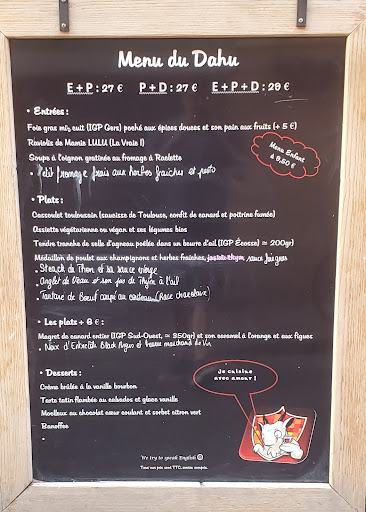 Menu du Dahu
E+P : 27 € P+D : 27 € E+P+D : 29 €
• Entrées :
Foie gras mi-cuit (IGP Gers) poché aux épices douces et son pain aux fruits (+ 5 €)
Raviolis de Mamie LULU (La Vraie !)
Soupe à l'oignon gratinée au fromage à Raclette
• Petit fromage frais aux herbes fraîches et pesto
Menu Enfant
à 9,50 €
• Plats :
Cassoulet toulousain (saucisse de Toulouse, confit de canard et poitrine fumée)
Assiette végétarienne ou végan et ses légumes bio
Tendre tranche de selle d'agneau poêlée dans un beurre d'ail (IGP Écosse) ≃ 200gr)
Médaillon de poulet aux champignons et herbes fraîches, sauce
• Steack de Thon et sa sauce vierge
• Onglet de Veau et son jus de Thym à l'ail
• Tartare de Bœuf coupé au couteau (Race charolaise)
• Les plats + 6 € :
Magret de canard entier (IGP Sud-Ouest, ≃ 350gr) et son caramel à l'orange et aux figues
• Noix d'Entrecôte Black Angus et beurre marchand de Vin
• Desserts :
Crème brûlée à la vanille bourbon
Tarte tatin flambée au calvados et glace vanille
Moelleux au chocolat cœur coulant et sorbet citron vert
Banoffee
-
Je cuisine
avec amour !
We try to speak English
Tous nos prix sont TTC, service compris.